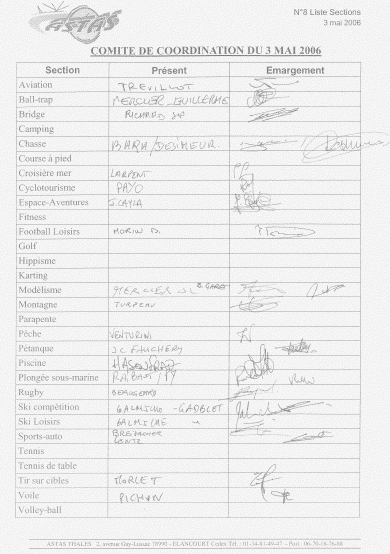 ASTAS
N°8 Liste Sections
3 mai 2006
COMITE DE COORDINATION DU 3 MAI 2006
Section Présent Emargement
Aviation TREVILLOT
Ball-trap MERCIER GUILLERME
Bridge RICHARD
Camping
Chasse BARA/DESIMEUR
Course à pied
Croisière mer LARPENT
Cyclotourisme PAYO
Espace-Aventures
Fitness
Football Loisirs MORIN D.
Golf
Hippisme
Karting
Modélisme MERCIER
Montagne TURPEAU
Parapente
Pêche VENTURINI
Pétanque J.C FAUCHERY
Piscine
Plongée sous-marine
Rugby
Ski compétition GALMICHE - GADBLET
Ski Loisirs GALMICHE
Sports-auto
Tennis
Tennis de table
Tir sur cibles MORLET
Voile PICHON
Volley-ball
ASTAS THALES 2, avenue Gay-Lussac 78990 - ELANCOURT Cedex Tél. : 01-34-81-49-47 - Port : 06-70-16-76-88